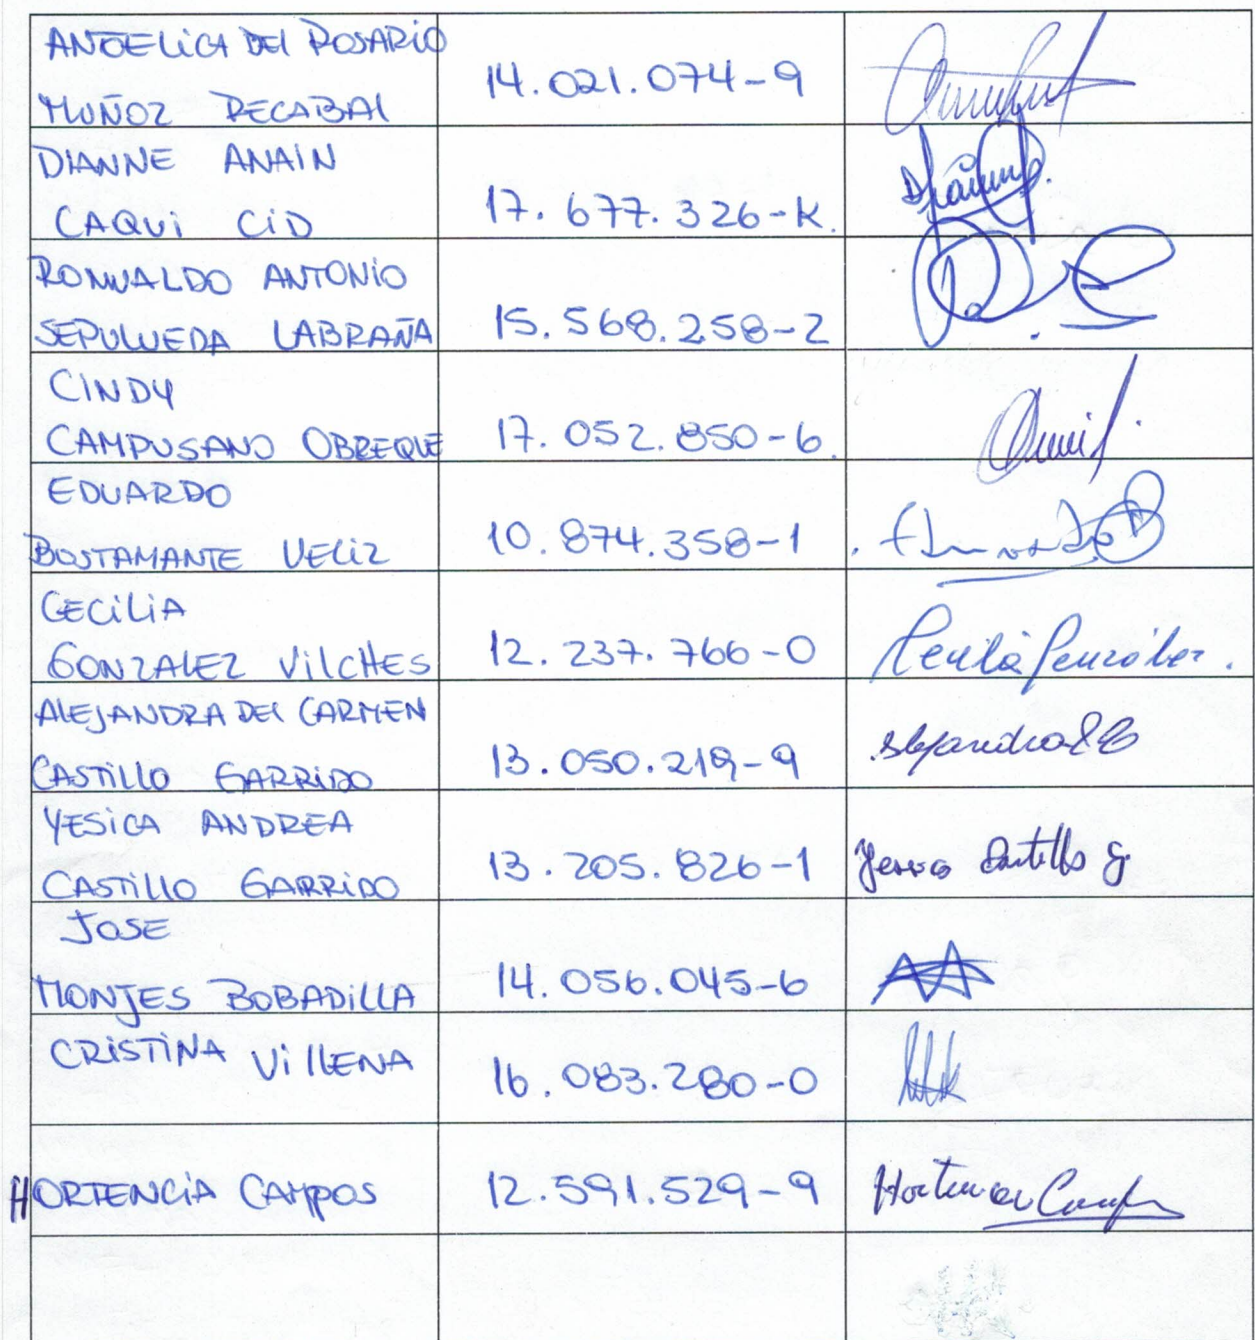 ANGELICA DEL ROSARIO
MUÑOZ RECABAL
14.021.074-9
DIANNE ANAIN
CAQUI CID
17.677.326-K
RONUALDO ANTONIO
SEPULVEDA LABRAÑA
15.568.258-2
CINDY
CAMPUSANO OBREQUE
17.052.850-6
EDUARDO
BUSTAMANTE VELIZ
10.874.358-1
CECILIA
GONZALEZ VILCHES
12.237.766-0
Cecilia González.
ALEJANDRA DEL CARMEN
CASTILLO GARRIDO
13.050.219-9
YESICA ANDREA
CASTILLO GARRIDO
13.205.826-1
Castillo G.
JOSE
MONJES BOBADILLA
14.056.045-6
CRISTINA VILLENA
16.083.280-0
HORTENCIA CAMPOS
12.591.529-9